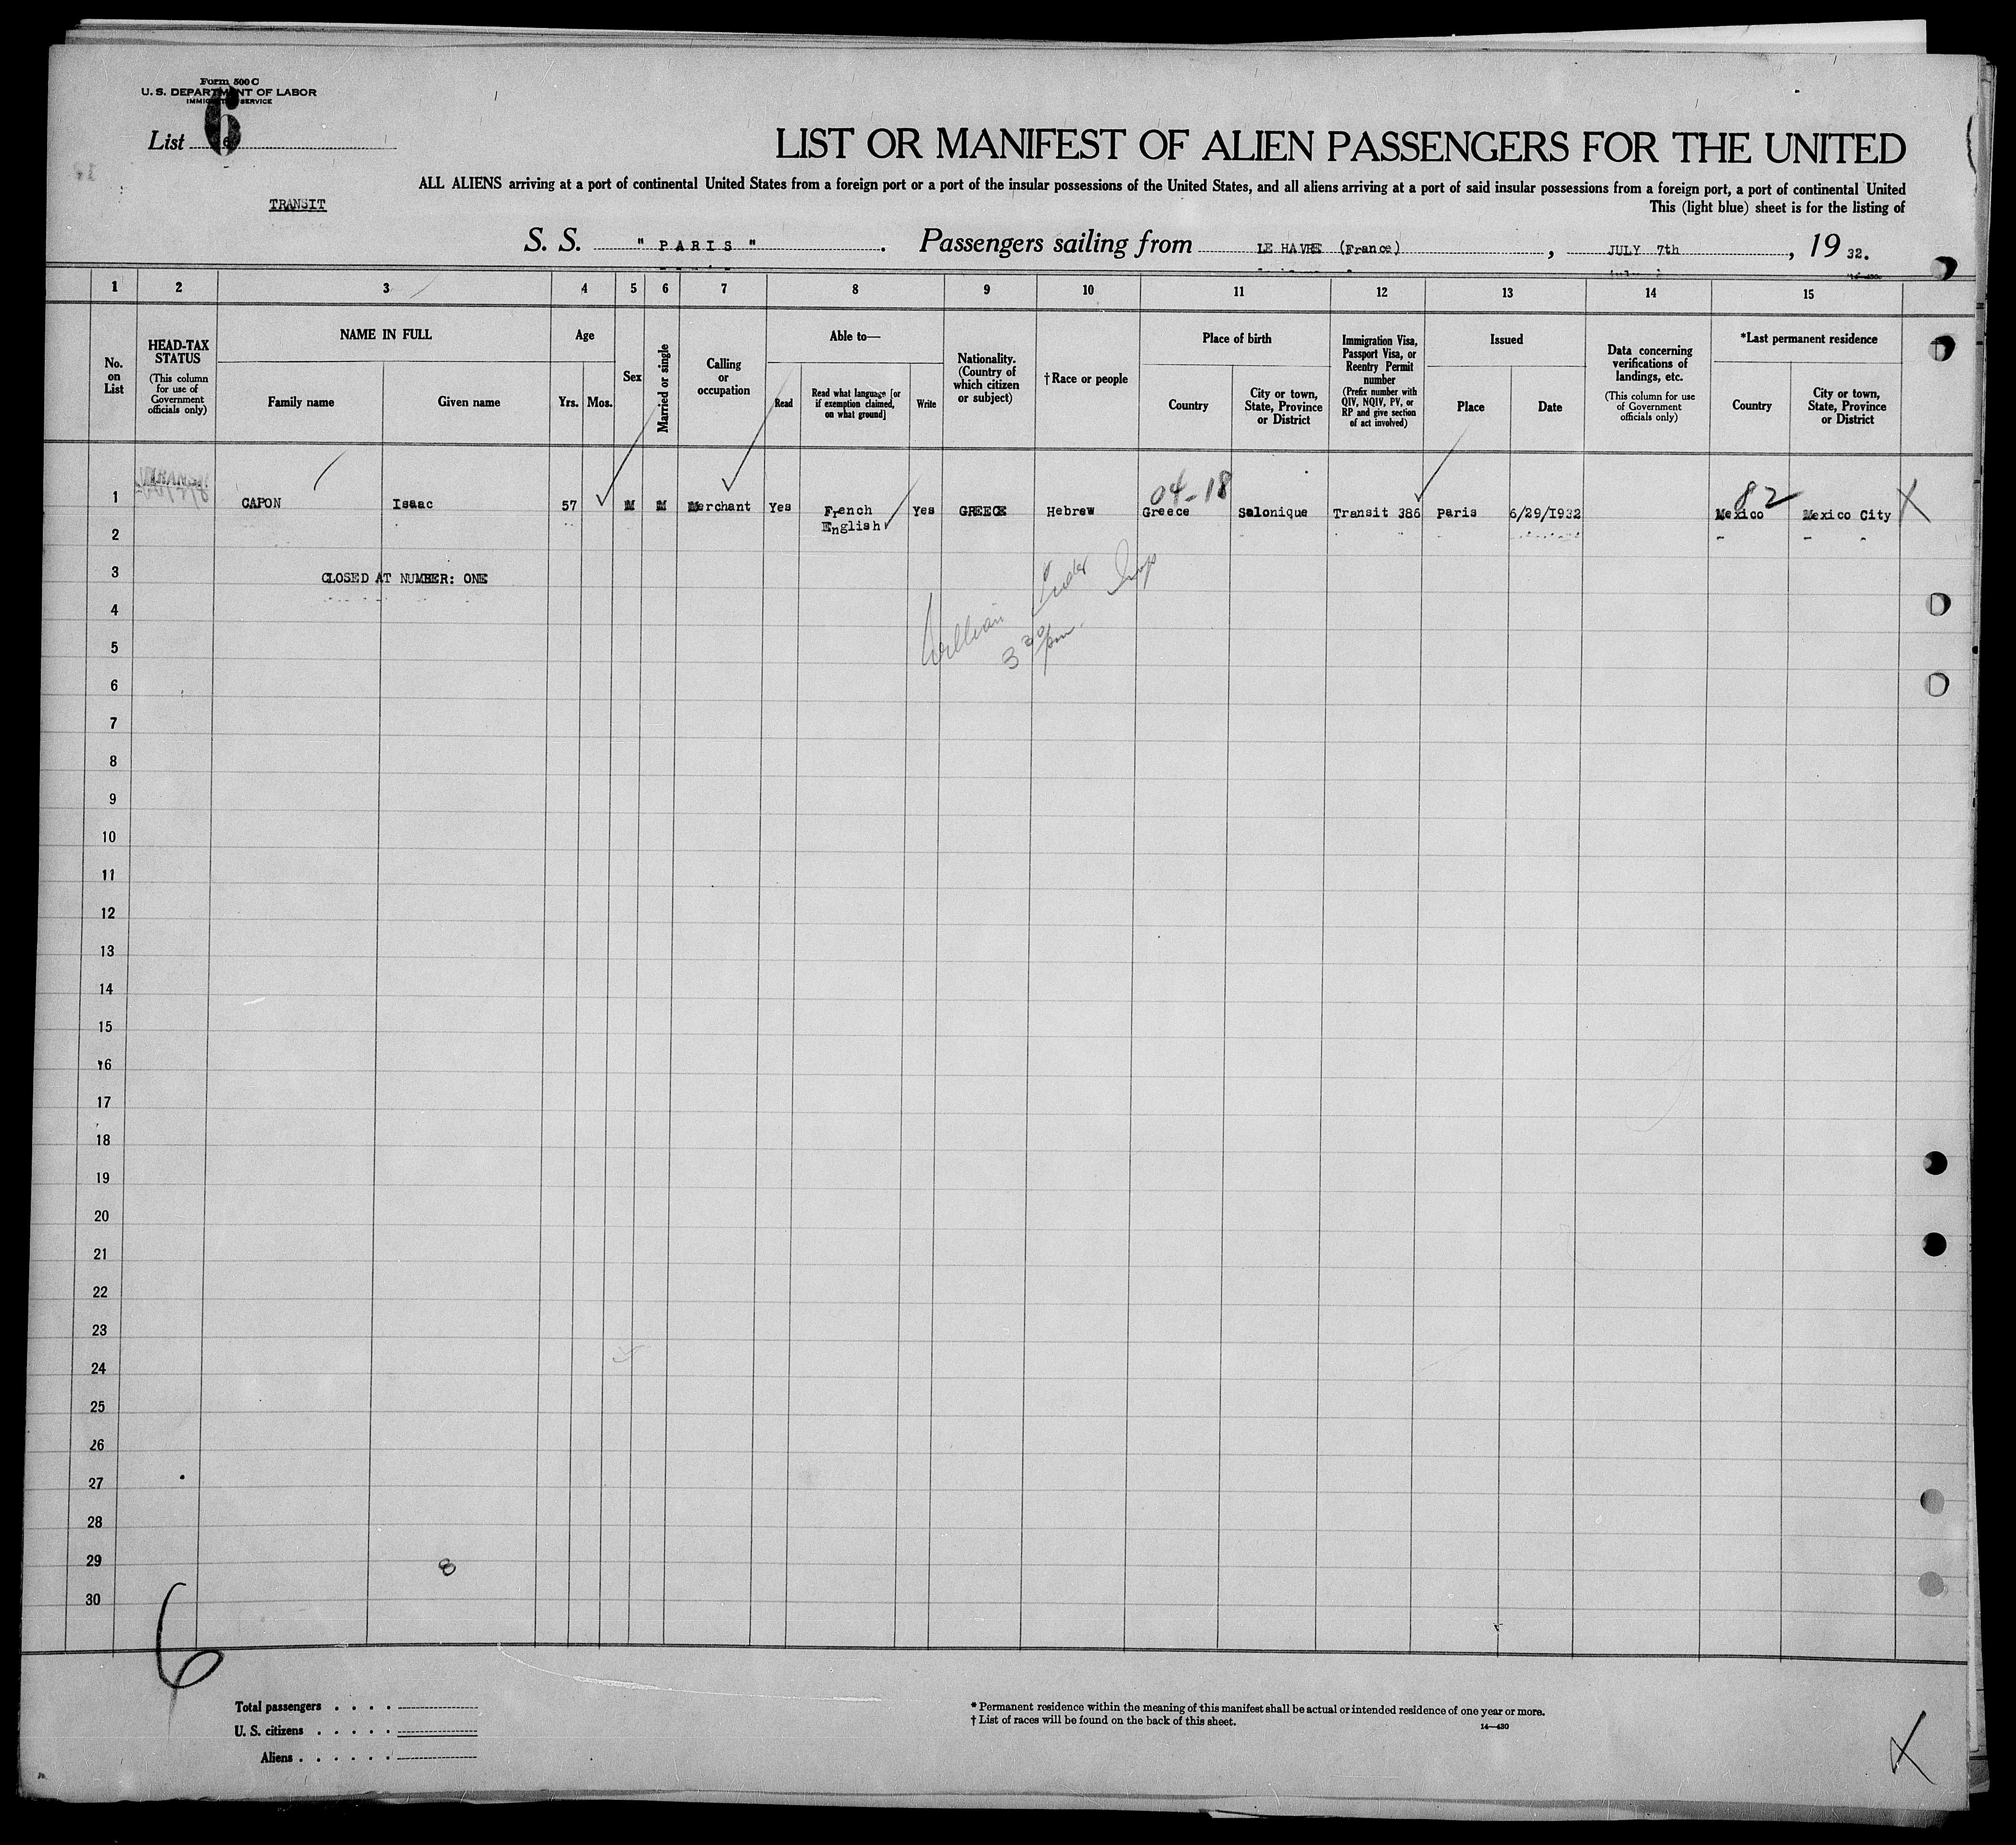 Form 500 C
U. S. DEPARTMENT OF LABOR
IMMIGRATION SERVICE
List 6
LIST OR MANIFEST OF ALIEN PASSENGERS FOR THE UNITED
ALL ALIENS arriving at a port of continental United States from a foreign port or a port of the insular possessions of the United States, and all aliens arriving at a port of said insular possessions from a foreign port, a port of continental United
TRANSIT
This (light blue) sheet is for the listing of
S. S. " PARIS " . Passengers sailing from LE HAVRE (France) , JULY 7th , 19 32.
1 2 3 4 5 6 7 8 9 10 11 12 13 14 15
No. on List
HEAD-TAX STATUS
(This column for use of Government officials only)
NAME IN FULL
Family name
Given name
Age
Yrs.
Mos.
Sex
Married or single
Calling or occupation
Able to—
Read
Read what language [or if exemption claimed, on what ground]
Write
Nationality. (Country of which citizen or subject)
† Race or people
Place of birth
Country
City or town, State, Province or District
Immigration Visa, Passport Visa, or Reentry Permit number
(Prefix number with QIV, NQIV, PV, or RP and give section of act involved)
Issued
Place
Date
Data concerning verifications of landings, etc.
(This column for use of Government officials only)
*Last permanent residence
Country
City or town, State, Province or District
04-18
82
1 CAPON Isaac 57 M M Merchant Yes French Yes GREECE Hebrew Greece Salonique Transit 386 Paris 6/29/1932 Mexico Mexico City X
English
2
3 CLOSED AT NUMBER: ONE
4
5
3 30 pm.
6
7
8
9
10
11
12
13
14
15
16
17
18
19
20
21
22
23
24
25
26
27
28
29 8
30
6
Total passengers . . . .
U. S. citizens . . . . .
Aliens . . . . . .
* Permanent residence within the meaning of this manifest shall be actual or intended residence of one year or more.
† List of races will be found on the back of this sheet.
14—430
X